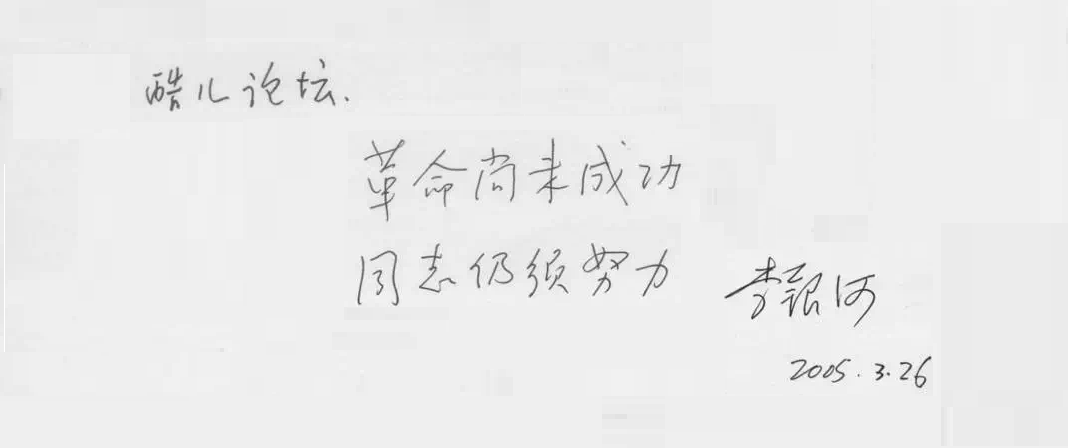 酷儿论坛.
革命尚未成功
同志仍须努力
李银河
2005.3.26